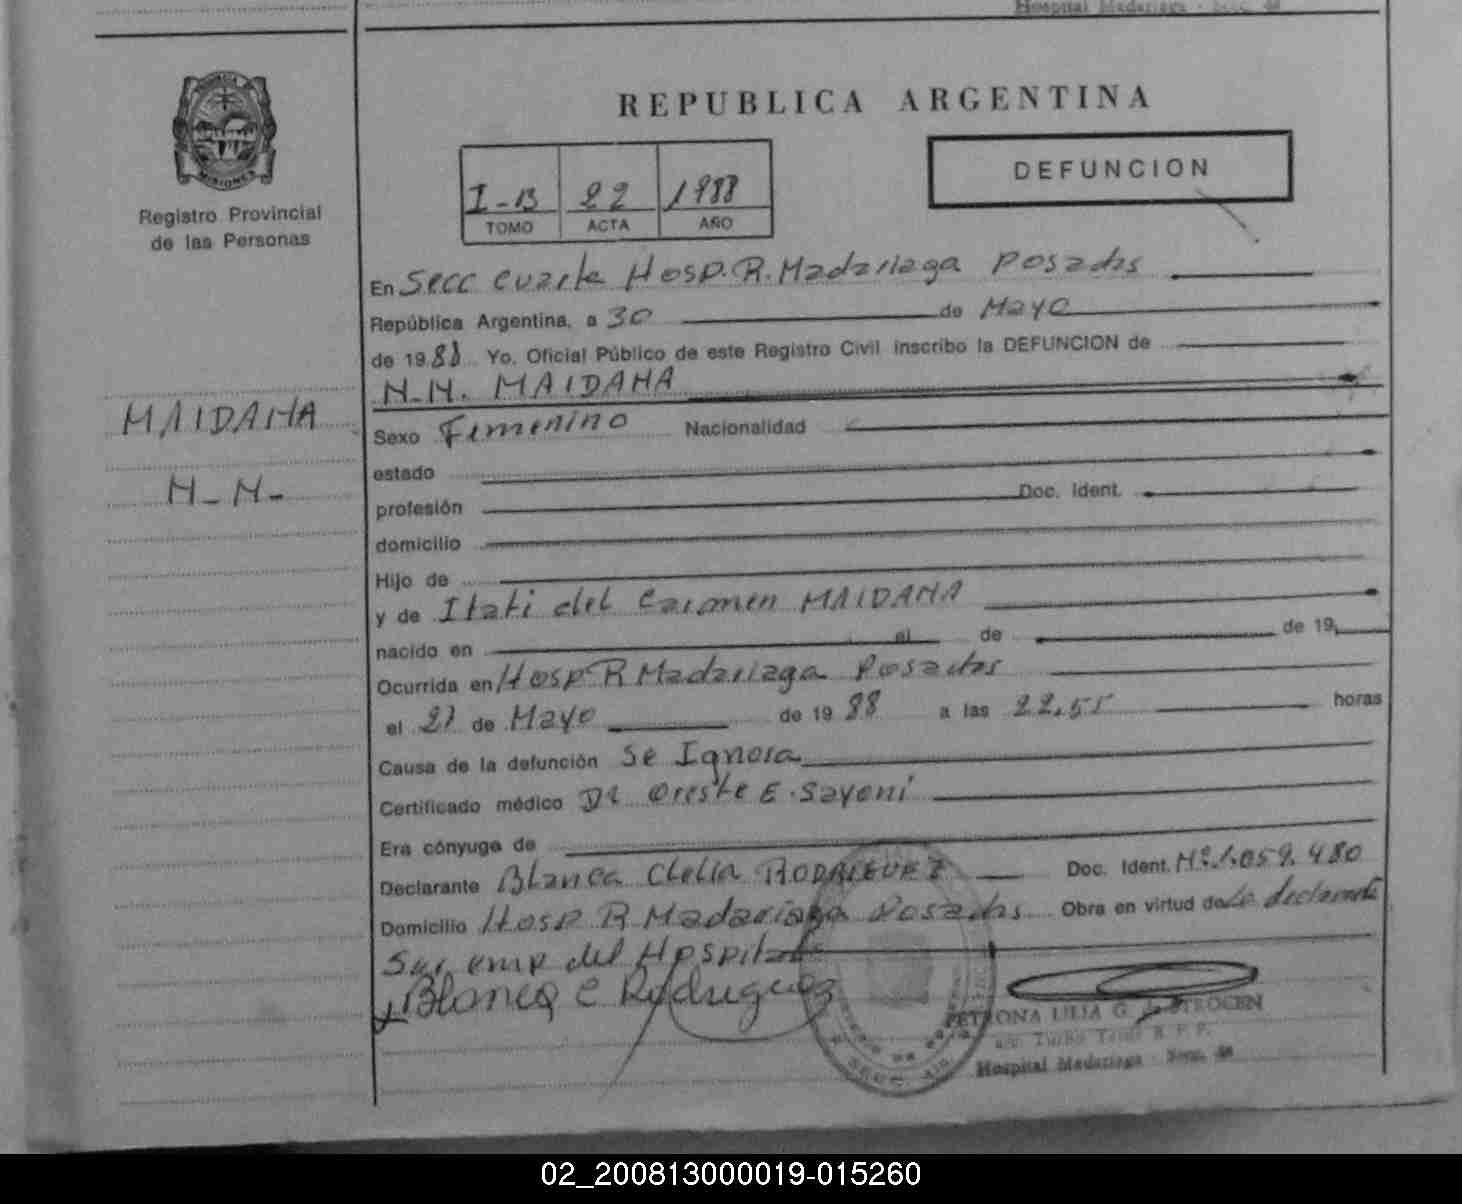 Hospital Madariaga - Secc. 4ª
PROVINCIA DE
MISIONES
Registro Provincial
de las Personas
REPUBLICA ARGENTINA
I-B 22 1988
TOMO ACTA AÑO
DEFUNCION
En Secc Cuarta Hosp. R. Madariaga Posadas
República Argentina, a 30 de Mayo
de 1988 Yo. Oficial Público de este Registro Civil inscribo la DEFUNCION de
N.N. MAIDANA
MAIDANA
N-N-
Sexo Femenino Nacionalidad
estado
profesión Doc. Ident.
domicilio
Hijo de
y de Itati del Carmen MAIDANA
nacido en el de de 19
Ocurrida en Hosp R Madariaga Posadas
el 27 de Mayo de 1988 a las 22.55 horas
Causa de la defunción Se Ignora
Certificado médico Dr Oreste E. Sayeni
Era cónyuge de
Declarante Blanca Clelia RODRIGUEZ Doc. Ident. Nº 1.059.480
Domicilio Hosp R Madariaga Posadas Obra en virtud de
del Hospital
Blanca C Rodriguez
PETRONA LILIA G.
Hospital Madariaga - Secc. 4ª
02_200813000019-015260